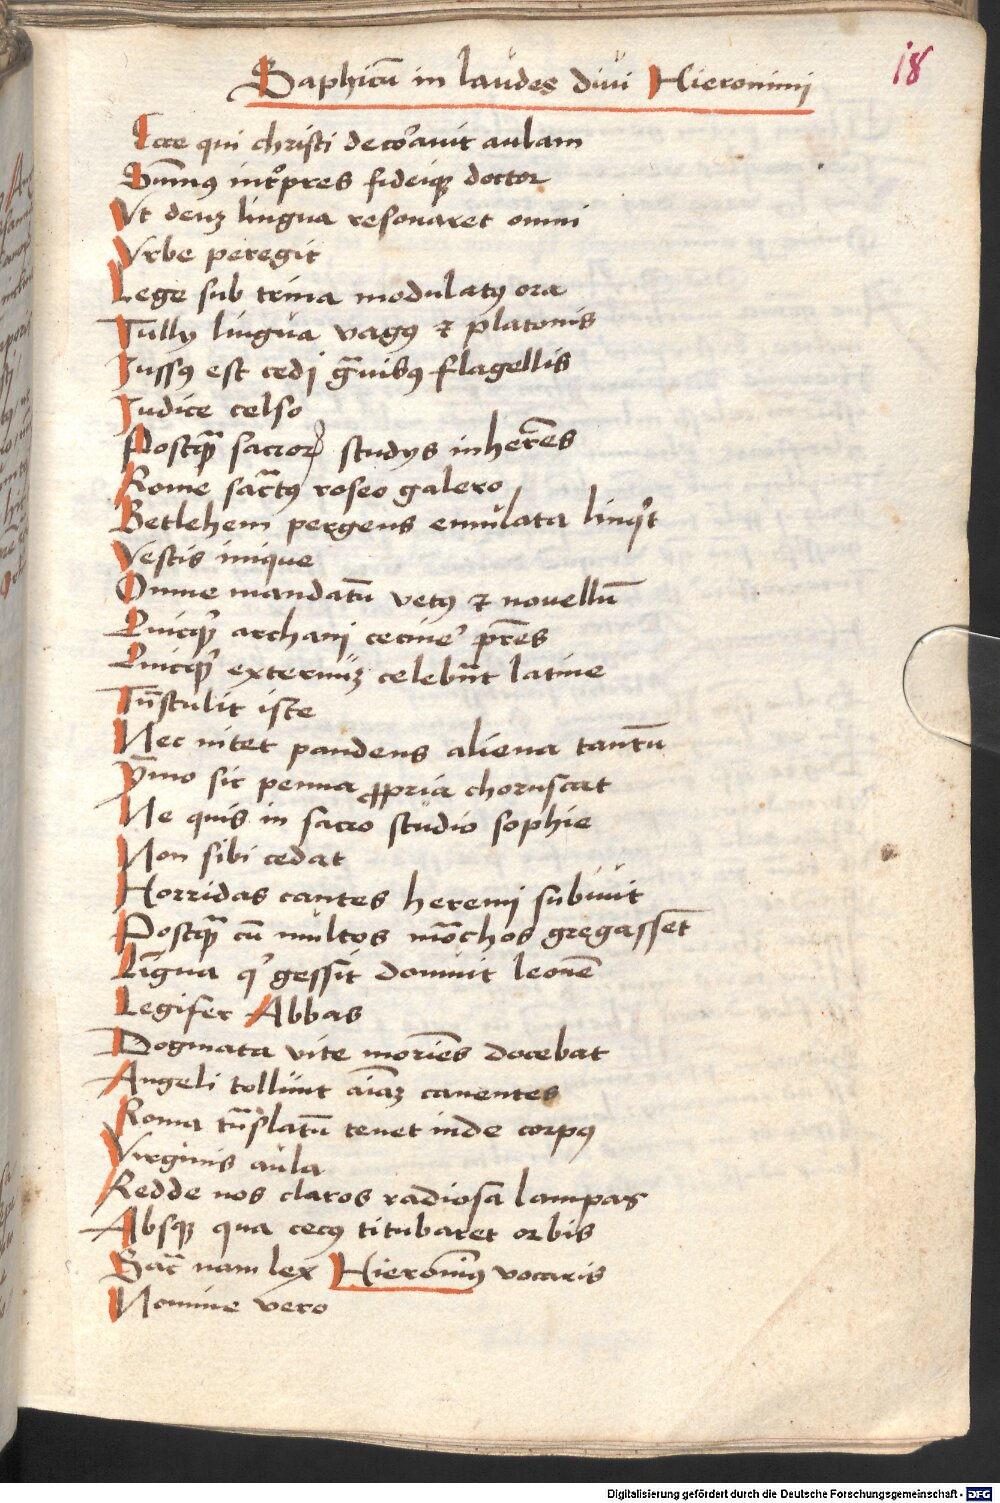 Saphicū in laudes diui Hieronimi
18
Ecce qui christi decorauit aulam
Sum̄us int'pres fideiqz doctor
Vt deuz lingua resonaret omni
Vrbe peregit
Lege sub trina modulatus ora
Tullij lingua vagus et platonis
Jussus est cedi gͣuibus flagellis
Judice celso
Postqͣ sacroꝝ studijs inherēs
Rome sanctus roseo galero
Betlehem pergens emulata linqt
Vestis inique
Omne mandatū vetus et nouellū
Quicqd archani cecine' pr̄es
Quicqd externuz celebrāt latine
Tn̄stulit iste
Nec nitet pandens aliena tantū
Ymmo sic penna ꝓpria choruscat
Ne quis in sacro studio sophie
Non sibi cedat
Horridas cautes heremi subiuit
Postqͣ cū multos mōchos gregasset
Lingua qd gessit domuit leonē
Legifer Abbas
Dogmata vite moriēs docebat
Angeli tollunt aīaz canentes
Roma tn̄slatū tenet inde corpus
Virginis aula
Redde nos claros radiosa lampas
Absqz qua cecus titubaret orbis
Sac̄ nam lex Hieronimus vocaris
Nomine vero
Digitalisierung gefördert durch die Deutsche Forschungsgemeinschaft - DFG